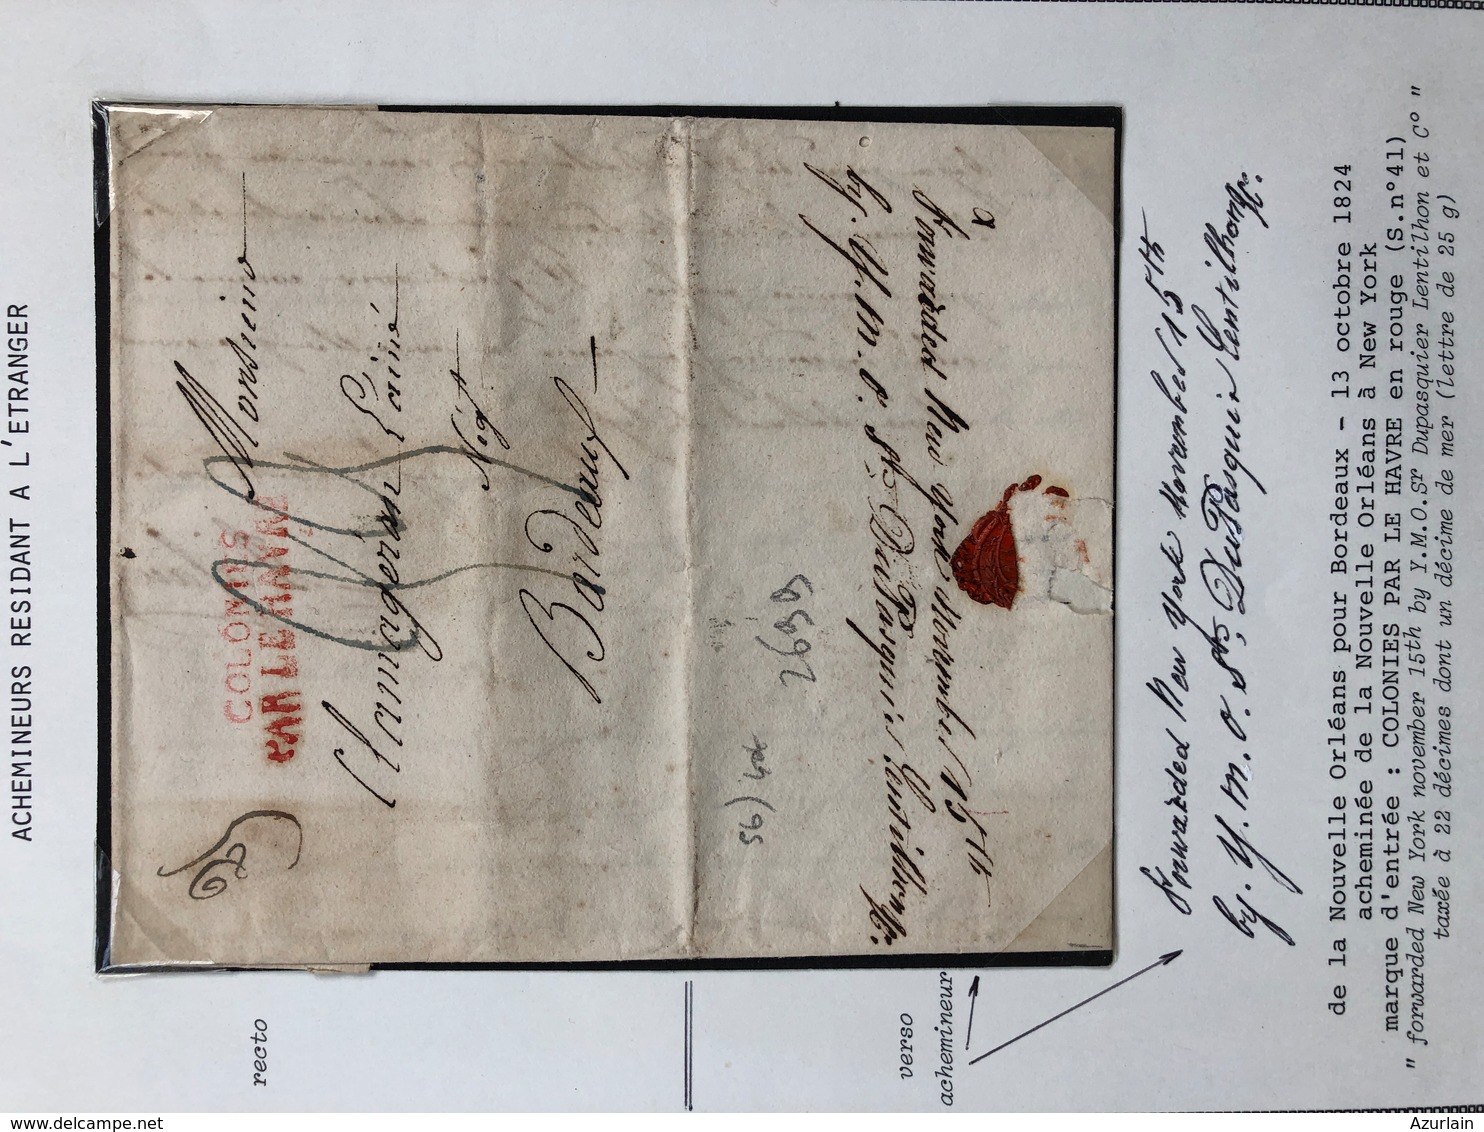 ACHEMINEURS RESIDANT A L'ETRANGER
recto
25
COLONIES
PAR LE HAVRE
Monsieur
Clamageran L'ainé
Négt
Bordeaux
verso
achemineur
56)
26885
by. Y. m. o. St. DuPasquier Lentilhon
forwarded New York November 15th
Forwarded New York November 15th
by. Y. m. o. St. DuPasquier Lentilhon
de la Nouvelle Orléans pour Bordeaux - 13 octobre 1824
acheminée de la Nouvelle Orléans à New York
marque d'entrée : COLONIES PAR LE HAVRE en rouge (S.n°41)
" forwarded New York november 15th by Y.M.O.Sr Dupasquier Lentilhon et C° "
taxée à 22 décimes dont un décime de mer (lettre de 25 g)
www.delcampe.net
Azurlain